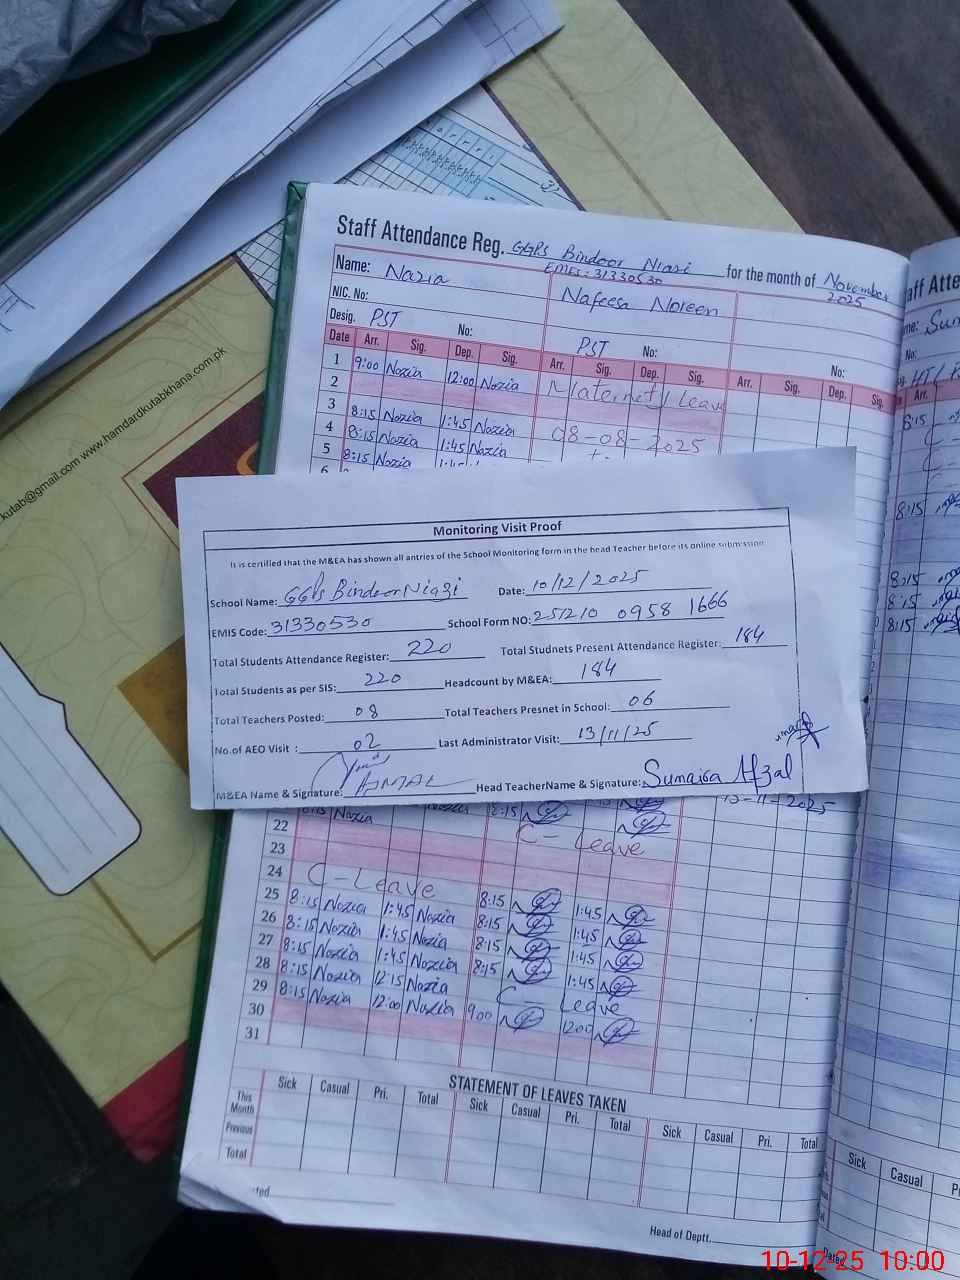 kutab@gmail.com www.hamdardkutabkhana.com.pk
Staff Attendance Reg. GGPS Bindoor Niazi for the month of November 2025
EMIS: 31330530
Name: Nazia Nafeesa Noreen
NIC. No:
Desig. PST No: PST No: No:
Date Arr. Sig. Dep. Sig. Arr. Sig. Dep. Sig. Arr. Sig. Dep. Sig.
1 9:00 Nazia 12:00 Nazia Maternity Leave
2
3 8:15 Nazia 1:45 Nazia 08-08-2025
4 8:15 Nazia 1:45 Nazia to
5 8:15 Nazia
6
Monitoring Visit Proof
It is certified that the M&EA has shown all antries of the School Monitoring form in the head Teacher before its online submission
School Name: GGPS Bindoor Niazi Date: 10/12/2025
EMIS Code: 31330530 School Form NO: 251210 0958 1666
Total Students Attendance Register: 220 Total Studnets Present Attendance Register: 184
Total Students as per SIS: 220 Headcount by M&EA: 184
Total Teachers Posted: 08 Total Teachers Presnet in School: 06
No.of AEO Visit : 02 Last Administrator Visit: 13/11/25
M&EA Name & Signature: Head TeacherName & Signature: Sumaira Afzal
8:15 Nazia 12:15
22 C-Leave
23
24 C-Leave
25 8:15 Nazia 1:45 Nazia 8:15 1:45
26 8:15 Nazia 1:45 Nazia 8:15 1:45
27 8:15 Nazia 1:45 Nazia 8:15 1:45
28 8:15 Nazia 12:15 Nazia 8:15 1:45
29 8:15 Nazia 12:00 Nazia C-Leave
30 9:00 12:00
31
STATEMENT OF LEAVES TAKEN
Sick Casual Pri. Total Sick Casual Pri. Total Sick Casual Pri. Total
This Month
Previous
Total
Head of Deptt.
Arr.
8:15
8:15
8:15
8:15
8:15
Sick Casual
Dated
10-12-25 10:00